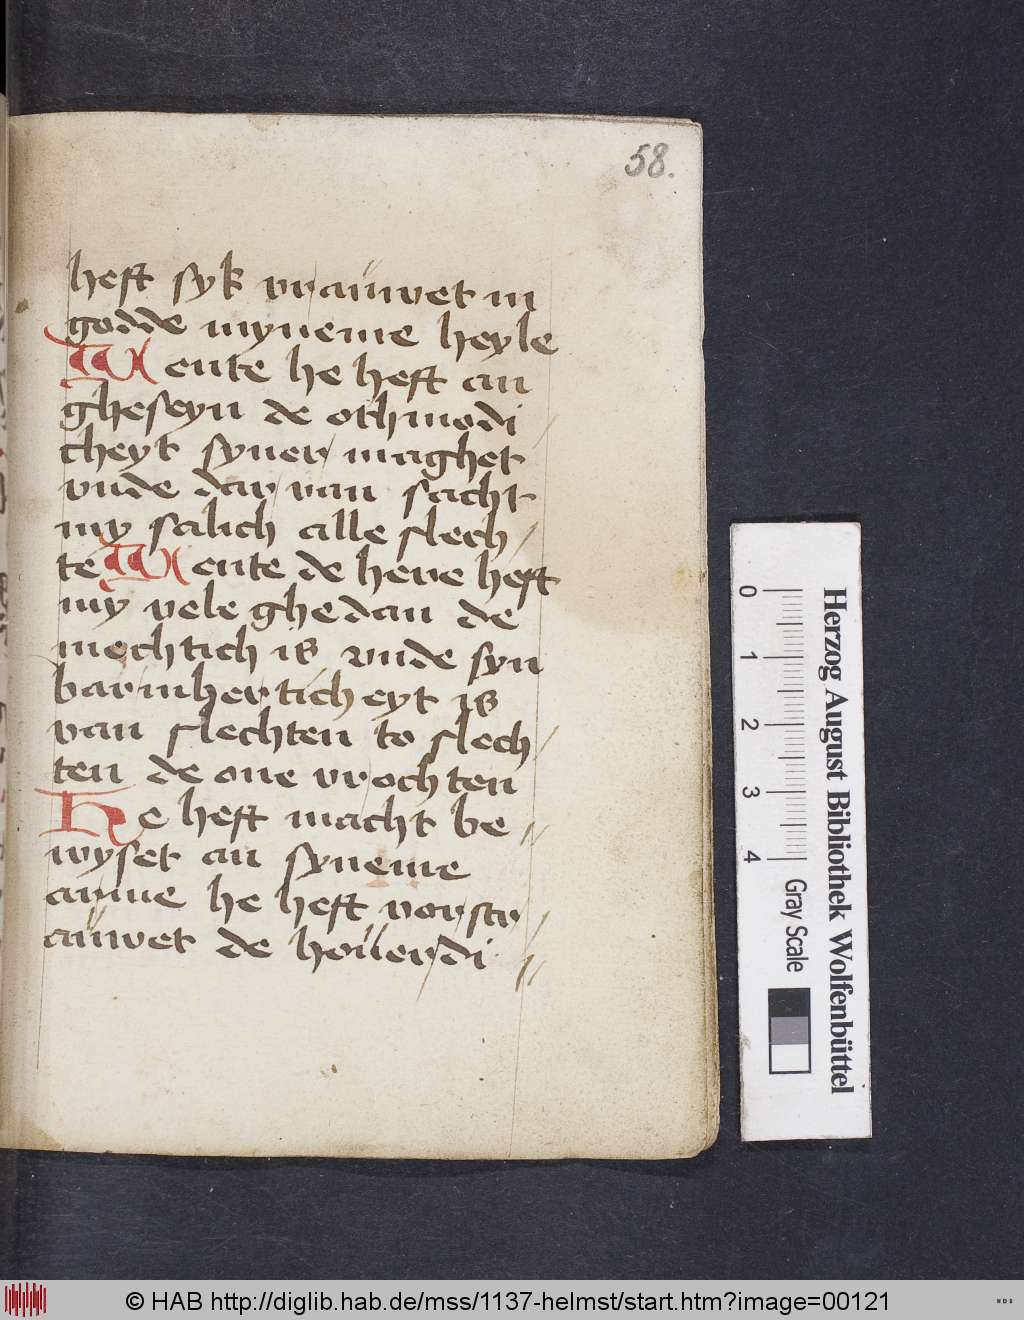 58.
heft syk vrauwet in
godde myneme heyle
Wente he heft an
gheseyn de othmodi
cheyt syner maghet
vnde dar van sacht
my salich alle slech
te Wente de here heft
my vele ghedan de
mechtich is vnde syn
barmherticheyt is
van slechten to slech
ten de one vrochten
He heft macht be
wyset an syneme
arme he heft vorstr
auwet de houerdi
Herzog August Bibliothek Wolfenbüttel
0 1 2 3 4
Gray Scale
© HAB http://diglib.hab.de/mss/1137-helmst/start.htm?image=00121